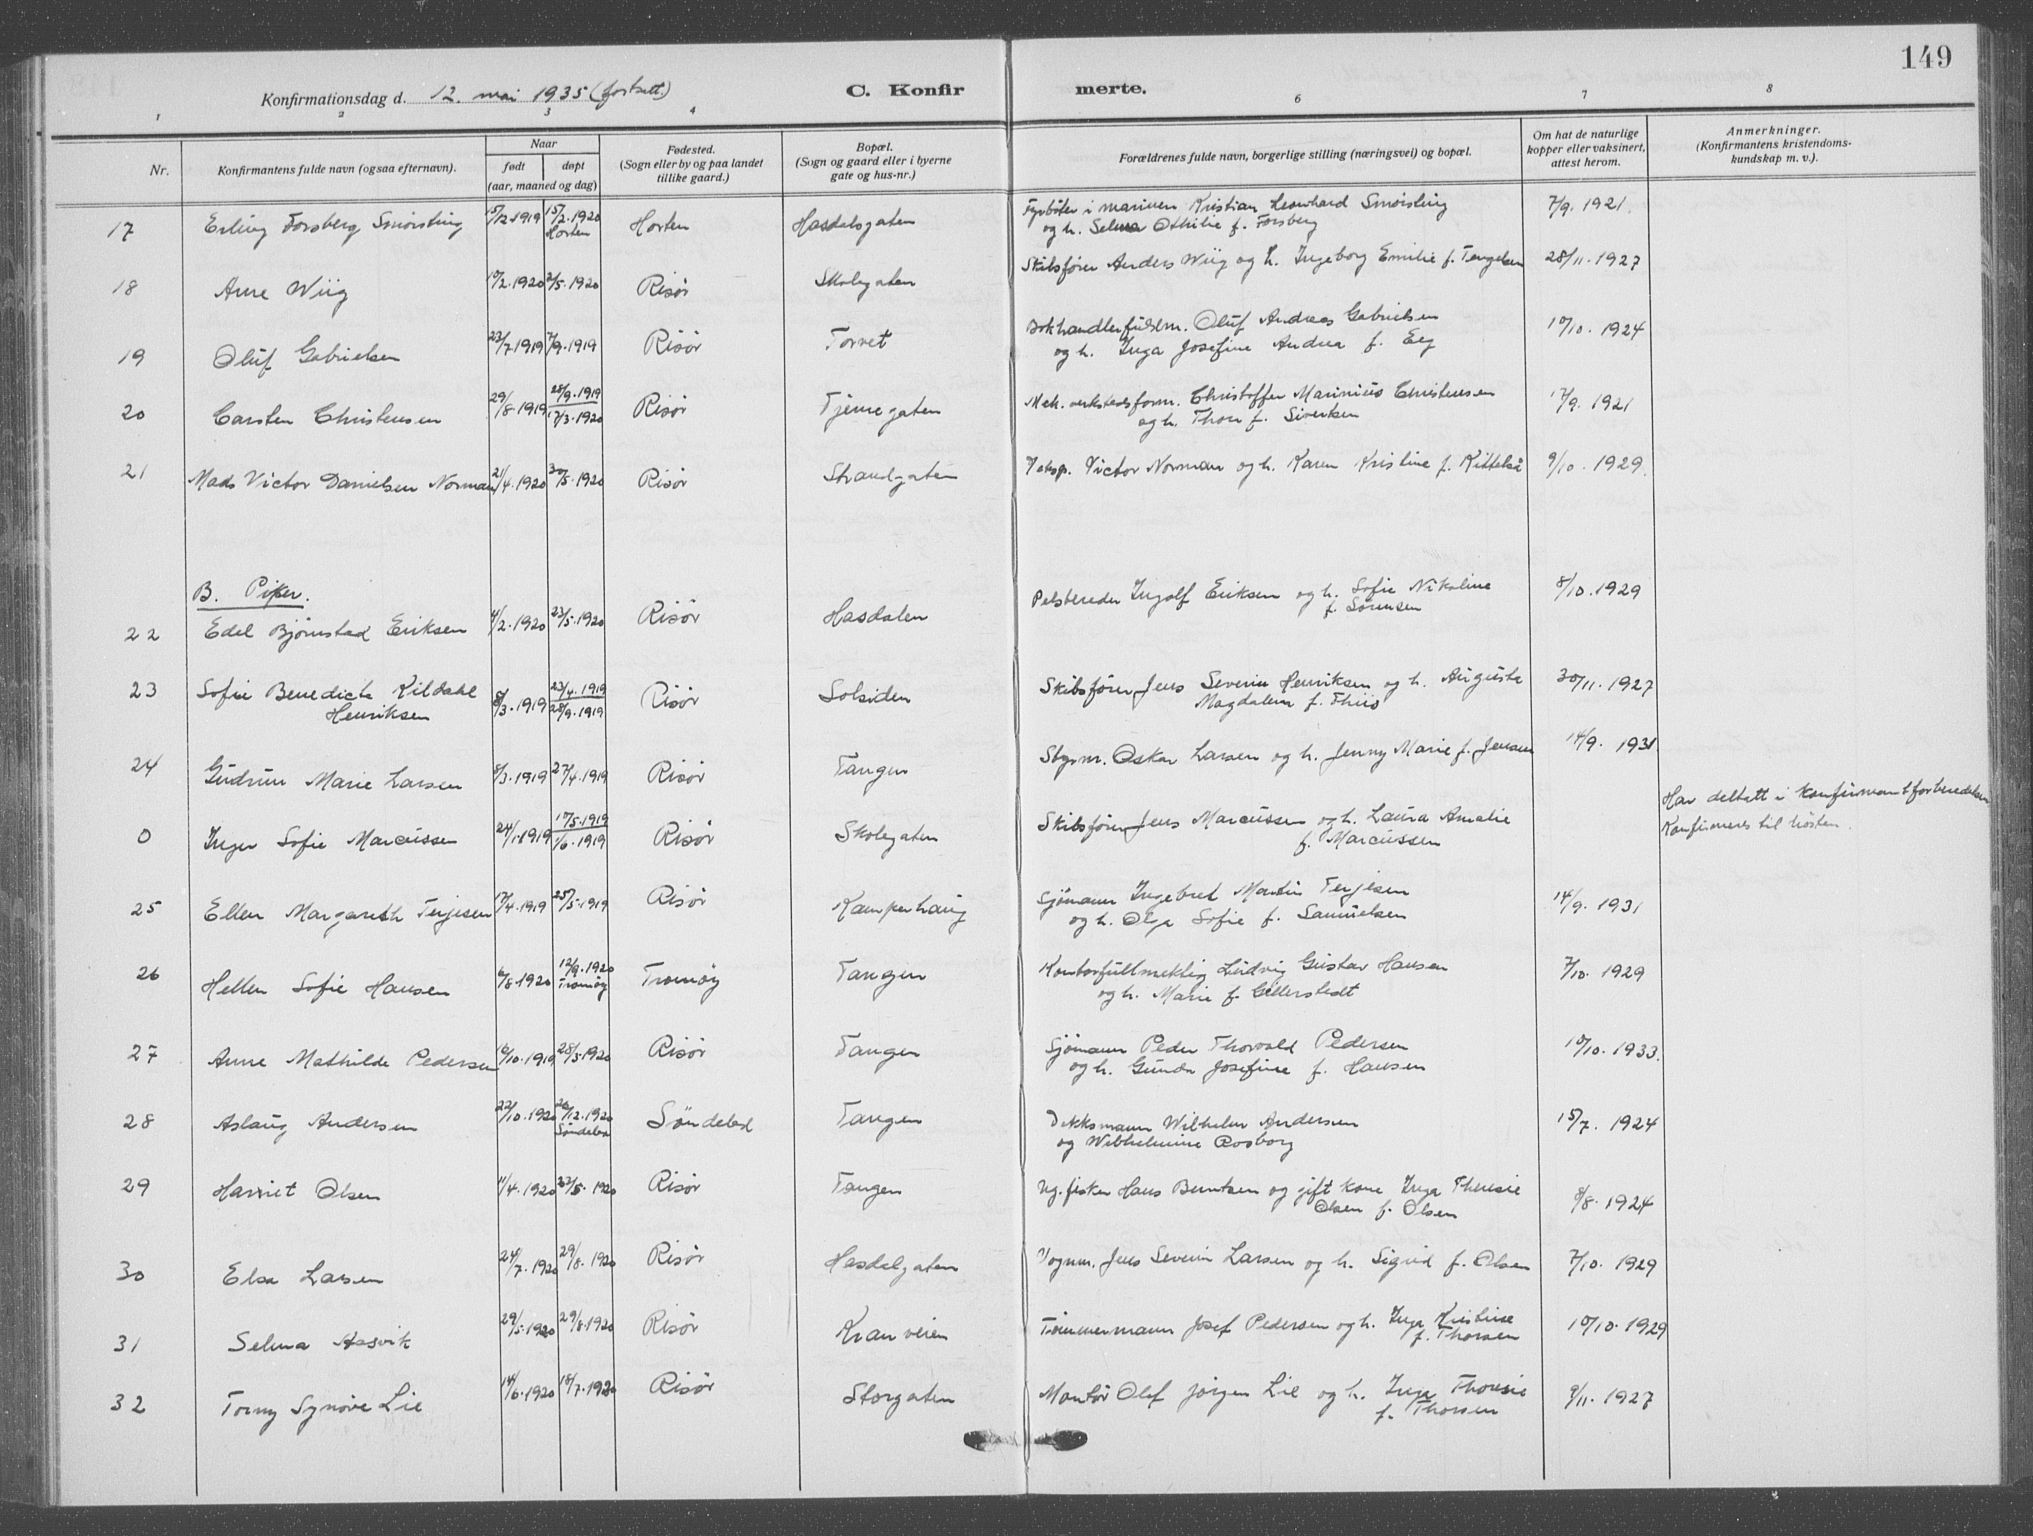 149
Konfirmationsdag d. 12. mai 1935 (fortsatt.)
C. Konfirmerte.
1 2 3 4 6 7 8
Nr.
Konfirmantens fulde navn (ogsaa efternavn).
Naar
født
døpt
(aar, maaned og dag)
Fødested.
(Sogn eller by og paa landet
tillike gaard.)
Bopæl.
(Sogn og gaard eller i byerne
gate og hus-nr.)
Forældrenes fulde navn, borgerlige stilling (næringsvei) og bopæl.
Om hat de naturlige
kopper eller vaksinert,
attest herom.
Anmerkninger.
(Konfirmantens kristendoms-
kundskap m. v.).
17 Erling Forsberg Smørsting 15/12 1919 15/2. 1920 Horten Horten Hasdalsgaten Fyrbøter i marinen Kristian Leonhard Smørsting 7/9. 1921.
og h. Selma Othilie f. Forsberg
18 Arne Wiig 10/2. 1920 2/5. 1920 Risør Skolegaten Skibsfører Anders Wiig og h. Ingeborg Emilie f. Tengelsen 28/11. 1927
19 Oluf Gabrielsen 23/7. 1919 7/9. 1919 Risör Torvet Bokhandlerfuldm. Oluf Andreas Gabrielsen 10/10. 1924
og h. Inga Josefine Andrea f. Eeg
20 Carsten Christensen 29/8. 1919 28/9. 1919 17/3. 1920 Risør Tjennegaten Mek. verkstedsform. Christoffer Marinius Christensen 17/9. 1921
og h. Thora f. Sivertsen
21 Mads Victor Danielsen Norman 21/4. 1920 30/5. 1920 Risør Strandgaten Victor Norman og h. Karen Kristine f. Kittelså 9/10. 1929.
B. Piker.
22 Edel Bjørnstad Eriksen 4/2. 1920 23/5. 1920 Risør Hasdalen Pelsbereder Ingolf Eriksen og h. Sofie Nikoline 8/10. 1929
f. Sørensen
23 Sofie Benedicte Kildahl 8/3. 1919 23/4. 1919 Risør Solsiden Skibsfører Jens Severin Henriksen og h. Augusta 30/11. 1927
Henriksen 28/9. 1919 Magdalena f. Thiis
24 Gudrun Marie Larsen 8/3. 1919 27/4. 1919 Risør Tangen Stgsm. Oskar Larsen og h. Jenny Marie f. Jensen 14/9. 1931
0 Inger Sofie Marcussen 24/1. 1919 17/5. 1919 1/6. 1919 Risør Skolegaten Skibsfører Jens Marcussen og h. Laura Amalie Har deltatt i konfirmantforberedelsen
f. Marcussen Konfirmeres til høsten.
25 Ellen Margareth Terjesen 17/4. 1919 25/5. 1919 Risør Kamperhaug Sjømann Ingebret Martin Terjesen 14/9. 1931
og h. Olga Sofie f. Samuelsen
26 Hellen Sofie Hansen 6/8. 1920 12/9. 1920 Tromöy Tromöy Tangen Kontorfullmektig Ludvig Gustav Hansen 7/10. 1929
og h. Marie f. Cellerstedt
27 Anne Mathilde Pedersen 16/10. 1919 28/3. 1920 Risör Tangen Sjømann Peder Thorvald Pedersen 10/10. 1933.
og h. Gunda Josefine f. Hansen
28 Aslaug Andersen 22/10. 1920 26/12. 1920 Søndeled Söndeled Tangen Dekksmann Wilhelm Andersen 15/7. 1924
og Wilhelmine Rosborg
29 Harriet Olsen 11/4. 1920 1920 Risør Tangen Ug. fisker Hans Berntsen og gift kone Inga Theresie 8/8. 1924
Olsen f. Olsen
30 Elsa Larsen 24/7. 1920 29/8. 1920 Risör Hasdalgaten Vognm. Jens Severin Larsen og h. Sigrid f. Olsen 7/10. 1929
31 Selma Aasvik 29/5. 1920 29/8. 1920 Risör Kranveien Tömmermann Josef Pedersen og h. Inga Kristine 10/10. 1929
f. Thorsen
32 Torny Synöve Lie 14/6. 1920 18/7. 1920 Risør Storgaten Montör Olef Jörgen Lie og h. Inga Theresie 9/11. 1927
f. Thorsen